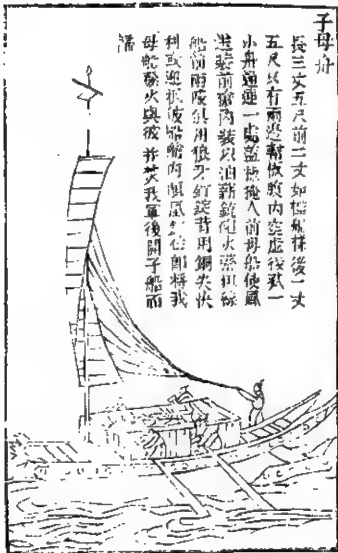 子母舟
長三丈五尺前二丈如艦船樣後一丈
五尺只有兩邊幫板腹內空虛後藏一
小舟通連一處蓋板掩人前母船使風
進裝前艙內裝以油薪火藥線
船前兩腋俱用狼牙釘錠背用銅尖快
利或迎抵彼船艙內順風信即將我
母船發火與彼并焚我軍後開子船而
歸